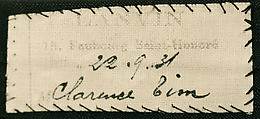 LANVIN
15, Faubourg Saint-Honoré
22.9.31
Clarence Eim